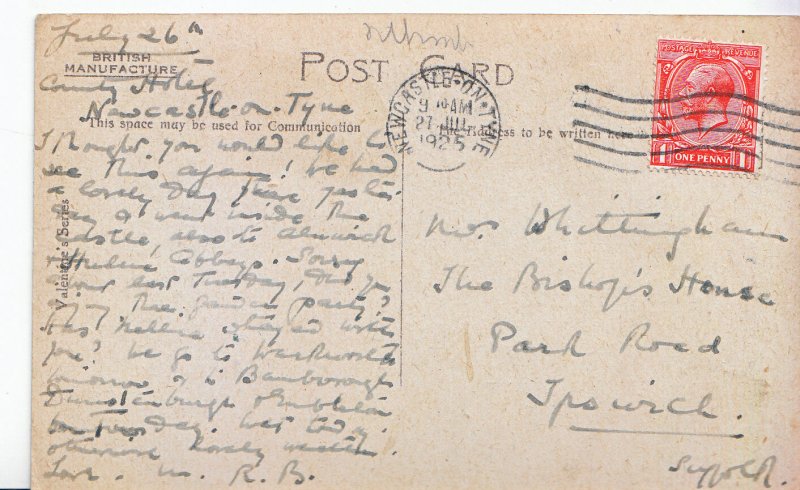 July 26th
BRITISH
MANUFACTURE
POST CARD
County Hotel
Newcastle-on-Tyne
This space may be used for Communication
The Address to be written here
I thought you would like to
see this again! We had
a lovely day here yester
day & went inside the
castle, also to Alnwick
& Hulne Abbeys. Sorry
last Tuesday, did you
enjoy the garden party?
Has Nellie stayed with
you? We go to Warkworth
tomorrow & to Bamborough
Dunstanburgh & Embleton
day. Wet today
otherwise lovely weather.
Love. M. R. B.
Valentine's Series
NEWCASTLE-ON-TYNE
9 AM
27 JUL
1925
POSTAGE REVENUE
1 ONE PENNY 1
Mrs Whittingham
The Bishop's House
Park Road
Ipswich.
Suffolk.